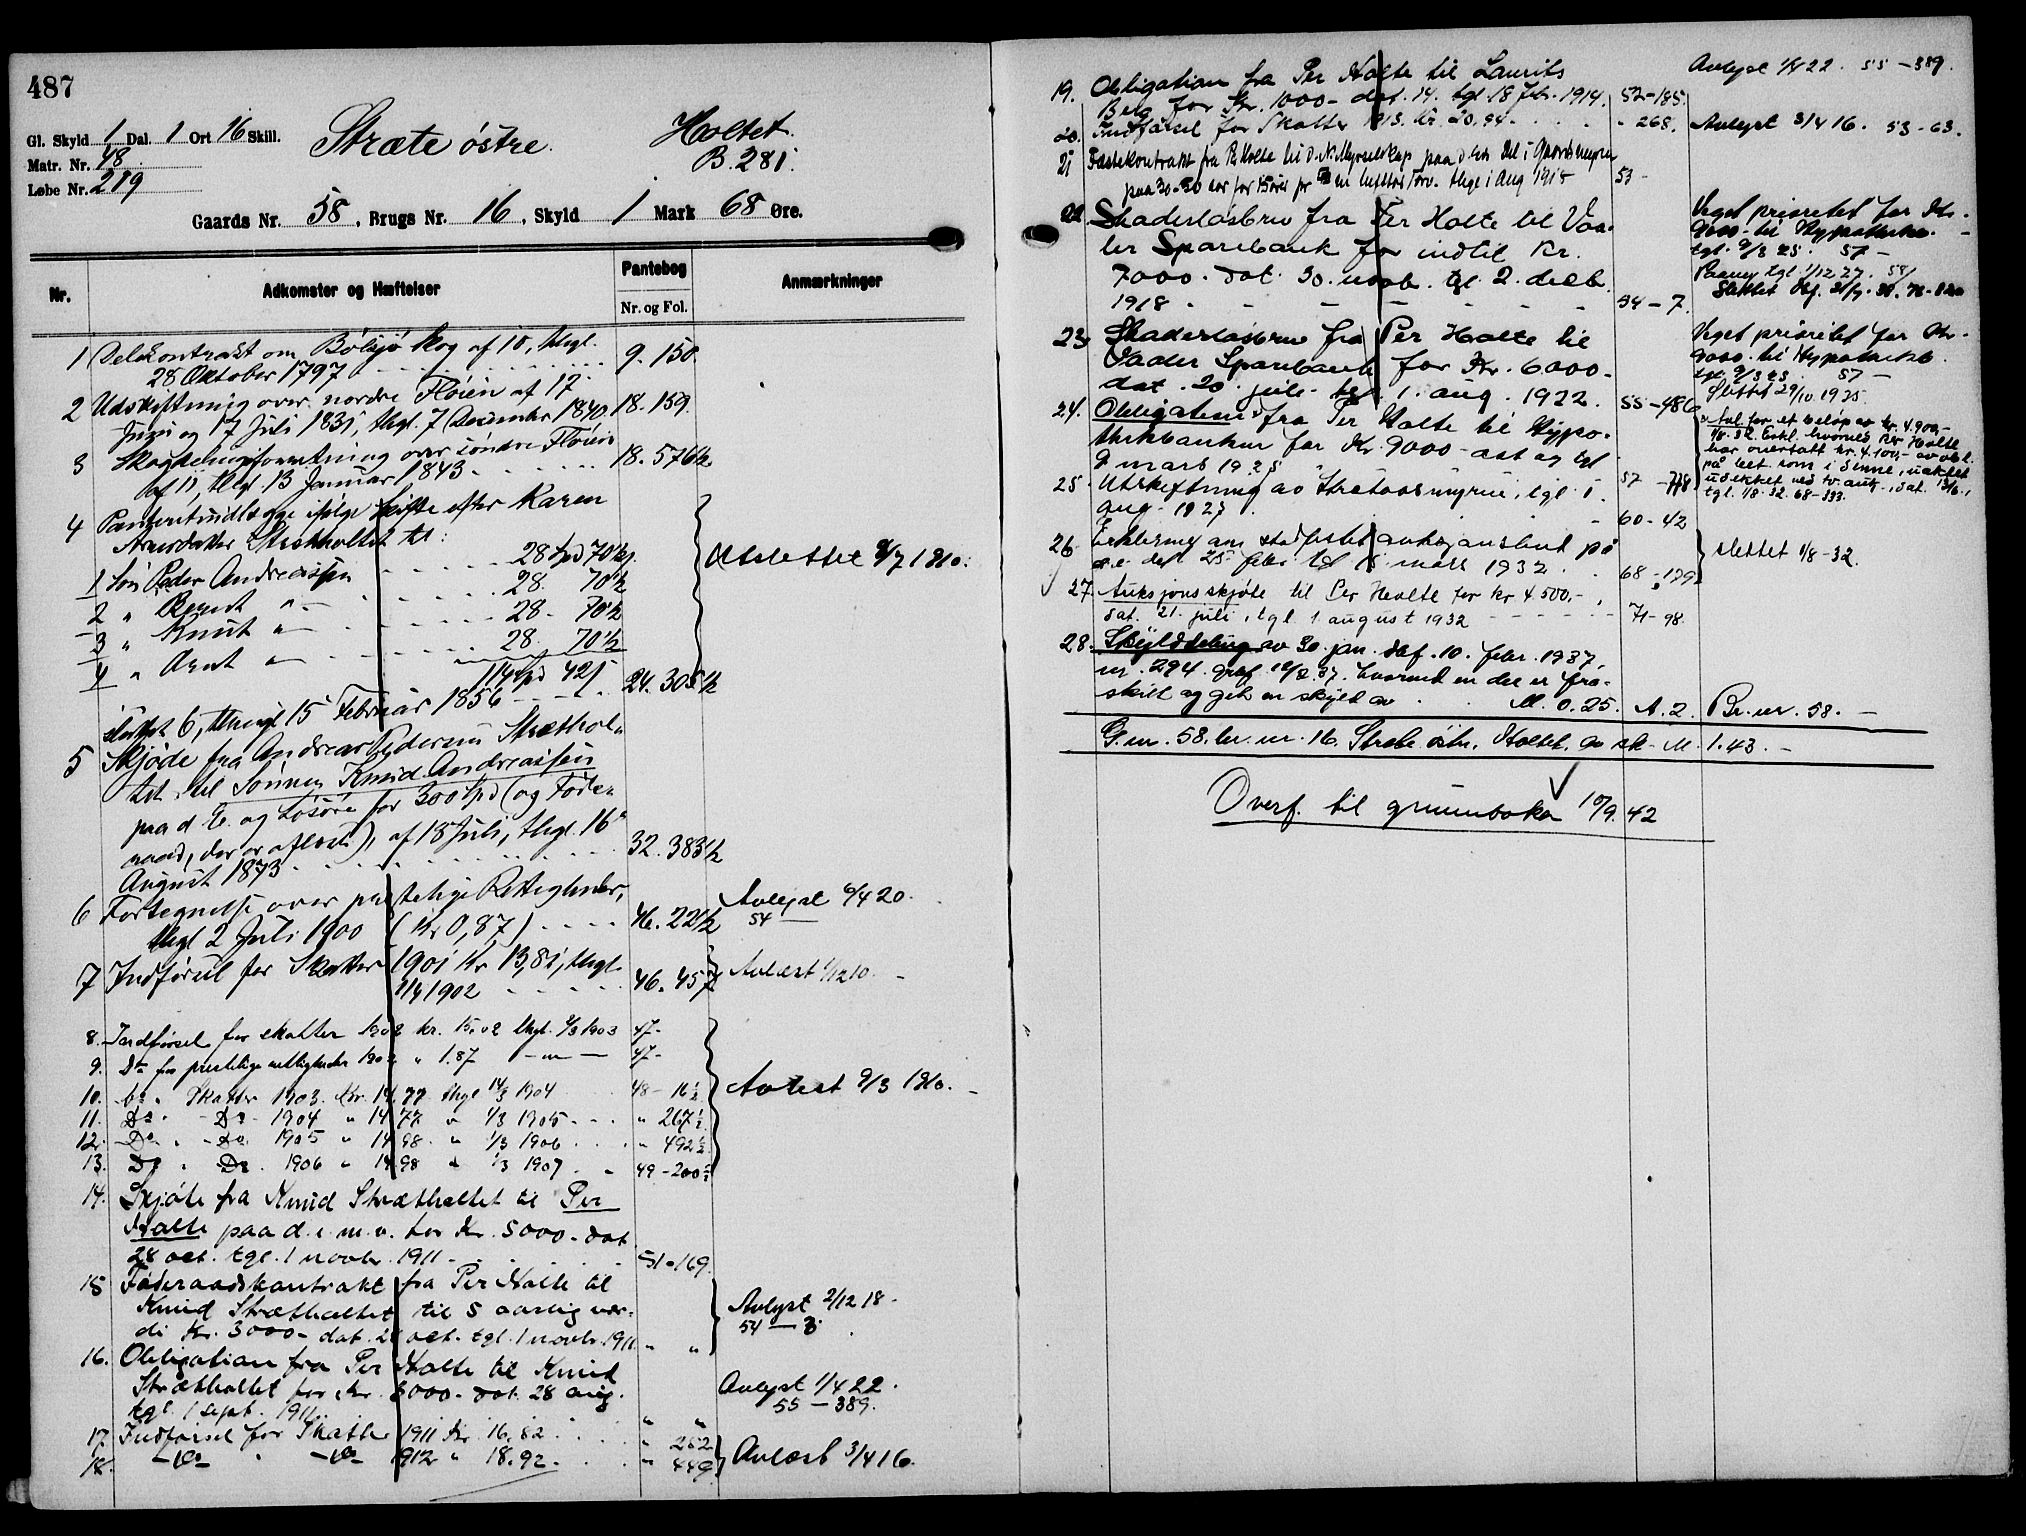 487
Gl. Skyld 1 Dal. 1 Ort 16 Skill.
Matr. Nr. 48
Løbe Nr. 219
Stræte østre.
Holtet.
B. 281.
Gaards Nr. 58, Brugs Nr. 16, Skyld 1 Mark 68 Øre.
Nr.
Adkomster og Hæftelser
Pantebog
Nr. og Fol.
Anmærkninger
1 Delekontrakt om Bölsjø skog af 10, thgl.
28 Oktober 1797 9. 150
2 Udskiftning over nordre Fløien af 17
Juni og 17 Juli 1835, thgl. 7 December 1840 18. 159.
3 Skogdelingsforretning over søndre Fløien
af 11, thgl. 13 Januar 1843 18. 576½
4 Panteretudlægge ifølge skifte efter Karen
Arnesdatter Strætholtet til:
1 Søn Peder Andreassen 28 spd 70½
2 " Bernt " 28. 70½
3 " Knut " 28. 70½
4 " Arent " 28. 70½
114 spd 42 24. 305½
Udslettet 8/7 1910.
sluttet 6, thingl 15 Februar 1856
5 Skjøde fra Andreas Pedersen Stræthol-
tet til Sønnen Knud Andreassen
paa d. E. og Løsøre for 300 spd (og Føde-
raad, der er afløst), af 18 Juli, thgl. 16
August 1873 32. 383½
6 Fortegnelse over prestelige Rettigheder,
thgl 2 Juli 1900 (Kr 0,87) 46. 22½ Avlyst 6/4 20.
54 —
7 Indførsel for Skatter 1901 Kr 13,81, thgl.
1/4 1902 46. 457 Avlæst 1/12 10.
8. Indførsel for skatter 1902 kr. 15.02 thgl. 2/3 1903 47-
9. Do for prestelige rettigheder 1902 " 1.87 — " — 47-
10. Do. Skatter 1903. Kr. 14.77 thgl 14/3 1904 48 - 16½ Avlest 9/3 1910.
11. Do. - Do. 1904 " 14 77 " 1/3 1905 " 267½
12. Do. - Do. 1905 " 14 98. " 1/3 1906 " 492½
13. Do. Do. 1906 " 14.98 " 1/3 1907 49 - 200½
14. Skjøte fra Knud Strætholtet til Per
Holte paa d. e. m. v. for Kr. 5000. dat
28 oct. tgl. 1 novbr. 1911 51 - 169.
15 Føderaadskontrakt fra Per Holte til
Knud Strætholtet til 5 aarlig vær-
di Kr. 3000. dat. 28 oct. tgl. 1 novbr. 1911 " "
Avlyst 2/12 18.
54 — 8
16. Obligation fra Per Holte til Knud
Strætholtet for Kr. 3000. dat. 28 aug.
tgl. 1 sept. 1911. " "
Avlyst 1/4 22.
55 — 389.
17. Indførsel for Skatter 1911 Kr. 16.82 " 252
18. — Do — — Do — 1912 " 18.92. " 449 Avlæst 3/4 16.
19. Obligation fra Per Holte til Laurits
Berg for Kr. 1000- dat. 14. tgl. 18 febr. 1914. 52 - 185. Avlyst 1/4 22. 55 - 389.
20. Indførsel for Skatter 1913. kr. 20.94 - 268. Avlyst 3/4 16. 53 - 63.
21 Fæstekontrakt fra P. Holte til D. N. Myrselskap paa d. Ets del i
paa 30 for 15 øre pr Torv. thgl i Aug 1915 53 -
22. Skadesløsbrev fra Per Holte til Vaa-
ler Sparebank for indtil Kr.
7000. dat. 30. novb. tgl. 2. decb.
1918 54 - 7.
Veget prioritet for Kr.
9000. til Hypothekb.
tgl. 9/3 25. 57 —
Paany tgl 1/12 27. 58/
23. Skadesløsbrev fra Per Holte til
Vaaler Sparebank for Kr. 6000-
dat. 20. juli tgl. 1. aug. 1922. 55 - 486
Veget prioritet for Kr.
9000. til Hypothekb.
tgl. 9/3 25. 57 —
Slettet 29/10 1935.
24. Obligation fra Per Holte til Hypo-
thekbanken for Kr. 9000 - dat og tgl
9 mars 1925 57 - 778
25. Utskiftning av Stræteosmyrene, tgl. 1.
aug. 1927 60 - 42
26. Erklæring om stadfestet auksjonsbud på
d. e. dat. 25. febr. tgl. 15. mars 1932 68 - 179 slettet 1/8 - 32.
27. Auksjonsskjøte til Per Holte for kr 4500,-,
dat. 21. juli, tgl. 1. august 1932 71 - 98.
28. Skylddeling av 30. jan. dbf. 10. febr. 1937.
nr. 294. grbf. 12/2.37. hvorved en del er fra-
skilt og git en skyld av M. 0.25. A. 2. Br. nr. 58. —
G. nr. 58. br. nr. 16. Stræte østr. Holtet, av sk. M. 1.43. —
Overf. til grunnboka 10/9.42